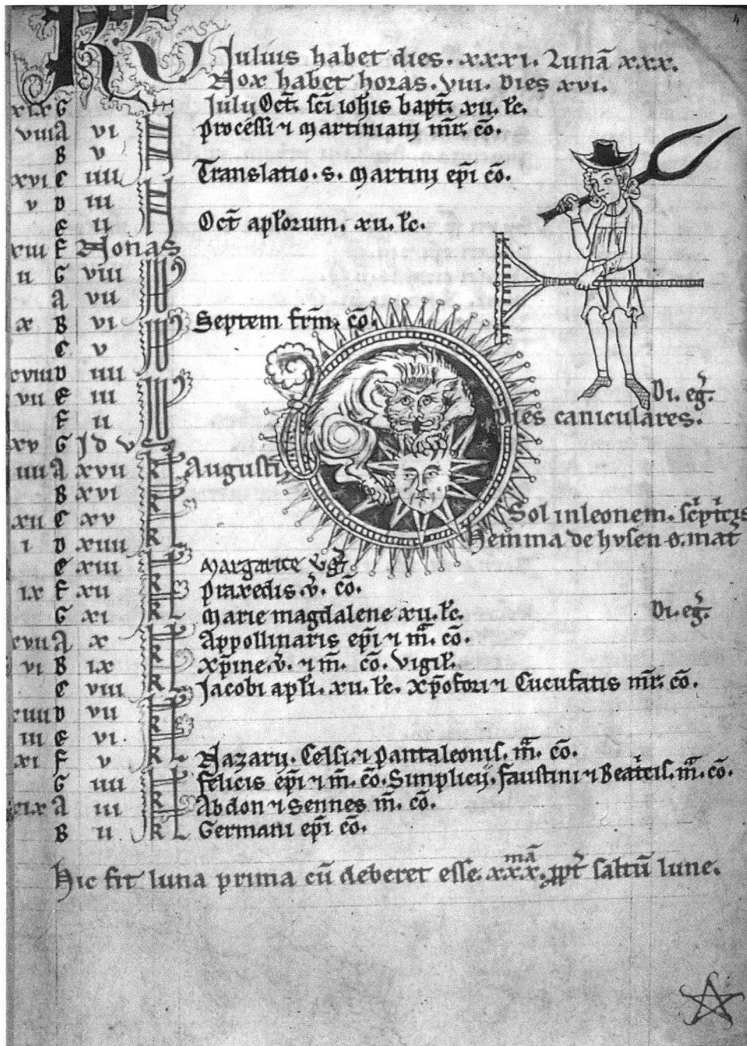 4
KL Julius habet dies. xxxi. Lunā xxx.
Nox habet horas. viii. Dies xvi.
xix G Julij Oct̄. sc̄i ioħis bapt̄. xii. lc̄.
viii A vi processi ⁊ martiniani mr̄. cō.
B v
xvi C iiii Translatio. s. martini ep̄i cō.
v D iii
E ii Oct̄ apl̄orum. xii. lc̄.
xiii F Nonas
ii G viii
A vii
x B vi Septem fr̄m. cō.
C v
xviii D iiii
vii E iii Di. eḡ.
F ii Dies caniculares.
xv G Idus
iiii A xvii kl Augusti
B xvi
xii C xv Sol in leonem.
i D xiiii Hemma de husen o. mat
E xiii Margarite v̄ḡ
ix F xii praxedis. v̄. cō.
G xi Marie magdalene xii. lc̄. Di. eḡ.
xvii A x Appollinaris ep̄i ⁊ m̄. cō.
vi B ix xp̄ine. v̄. ⁊ m̄. cō. vigil̄.
C viii Jacobi apl̄i. xii. lc̄. xp̄ofori ⁊ Cucufatis mr̄. cō.
xiiii D vii
iii E vi
xi F v Nazarij. Celsi ⁊ pantaleonis. m̄. cō.
G iiii felicis ep̄i ⁊ m̄. cō. Simplicij. faustini ⁊ Beatr̄cis. m̄. cō.
xix A iii Abdon ⁊ Sennes m̄. cō.
B ii kl Germani ep̄i cō.
Hic fit luna prima cū deberet esse. xxx.mā pp̄t saltū lune.